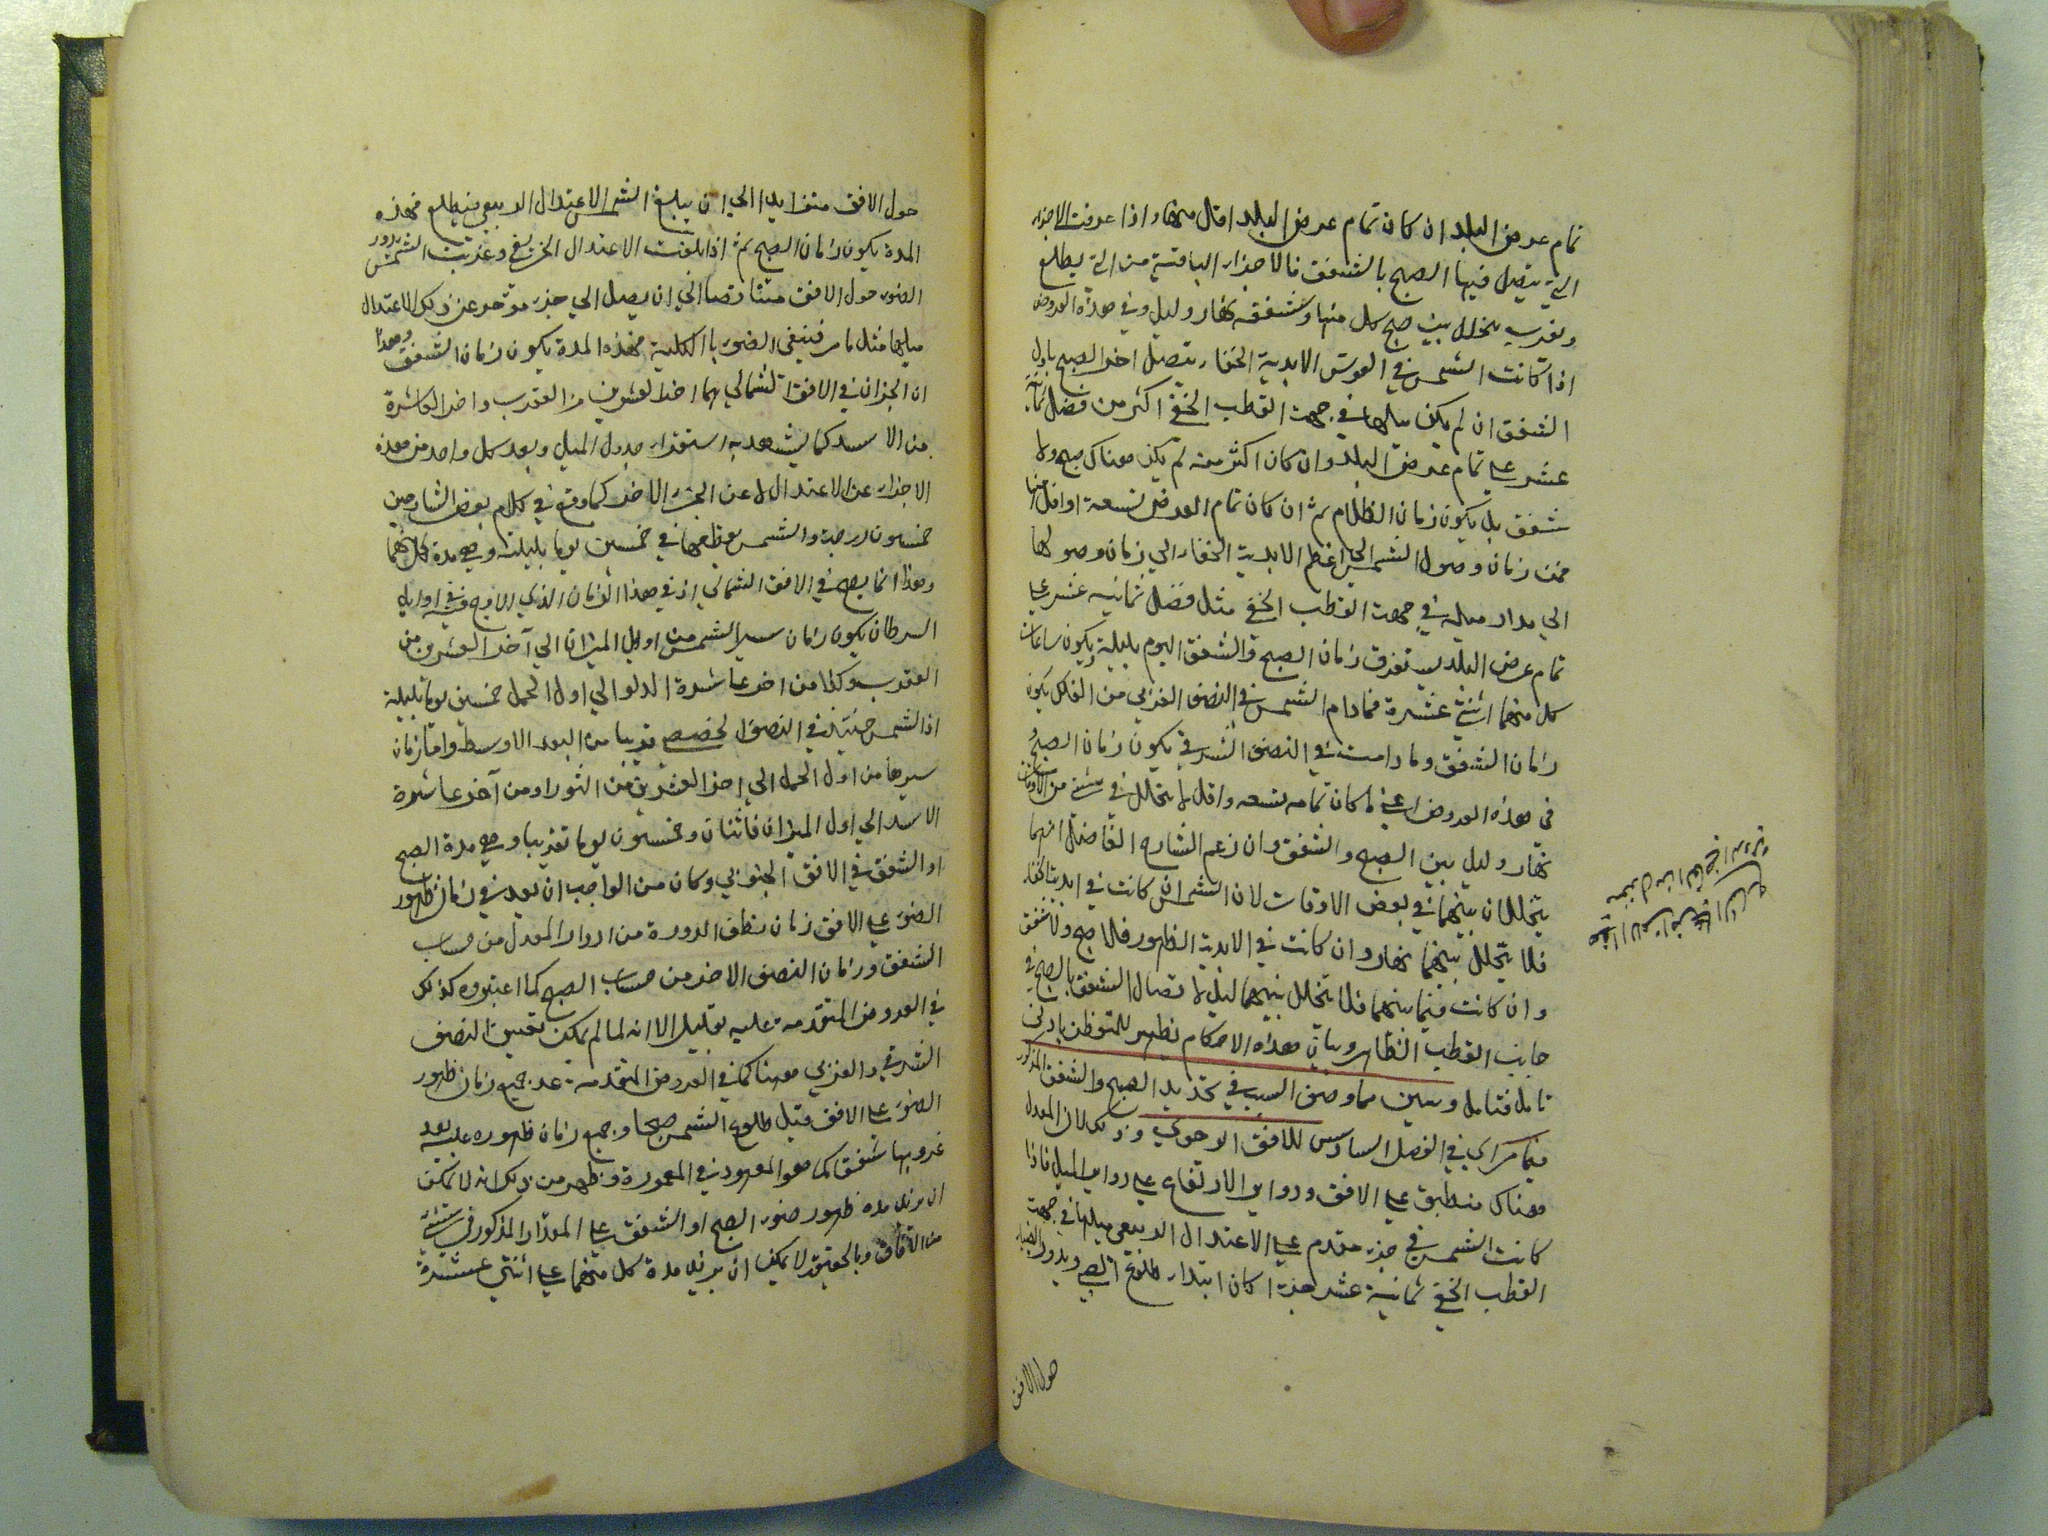 تمام عرض البلد ان كان تمام عرض البلد اقل منها واذا عرفت الاجزاء
التي يتصل فيها الصبح بالشفق فالاجزاء الباقية من التي يطلع
ويغرب يتخلل بين صبح كل منها وشفقه نهار وليل وفي هذه العروض
اذا كانت الشمس في القوس الابدية الخفاء يتصل اخر الصبح باول
الشفق ان لم يكن ميلها في جهت القطب الخفي اكثر من فضل ثمانية
عشر على تمام عرض البلد وان كان اكثر منه لم يكن هناك صبح ولا
شفق بل يكون زمان الظلام ثم ان كان تمام العرض تسعة او اقل منها
فمن زمان وصول الشمس الى اعظم الابدية الخفاء الي زمان وصولها
الي مدار ميله في جهت القطب الخفي مثل فضل ثمانية عشر على
تمام عرض البلد يستغرق زمان الصبح والشفق اليوم بليلة ويكون ساعات
كل منهما اثنتي عشرة فمادام الشمس في النصف الغربي من الفلك يكون
زمان الشفق ومادامت في النصف الشرقي يكون زمان الصبح و
في هذه العروض اعني ما كان تمامه تسعه واقل لا يتخلل في شئ من الاوقات
نهار وليل بين الصبح والشفق وان زعم الشارح الفاضل انهما
يتخللان بينهما في بعض الاوقات لان الشمس ان كانت في ابدية الخفاء
فلا يتخلل بينهما نهار وان كانت في الابدية الظهور فلا صبح ولا شفق
وان كانت فيما بينهما فلا يتخلل بينهما ليل لاتصال الشفق بالصبح في
جانب القطب الظاهر وبيان هذه الاحكام يظهر للمتفطن بادنى
تامل فتامل وتبين مما وصف السبب في تحديد الصبح والشفق المذكور
فيما مر اي في الفصل السادس للافق الرحوي وذلك لان المعدل
هناك منطبق على الافق ودواير الارتفاع على دواير الميل فاذا
كانت الشمس في جزء متقدم على الاعتدال الربيعي ميلها في جهت
القطب الخفي ثمانية عشر جزءا كان ابتداء طلوع الصبح ويدور الضياء
حول الافق
حول الافق متزايدا الي ان يبلغ الشمس الاعتدال الربيعي فيطلع فهذه
المدة يكون زمان الصبح ثم اذا بلغت الاعتدال الخريفي وغربت الشمس يدور
الضوء حول الافق متناقصا الي ان يصل الي جزء مؤخر عن ذلك الاعتدال
ميلها مثل ما مر فينفي الضوء بالكلية فهذه المدة يكون زمان الشفق وهذا
ان الجزان في الافق الشمالي هما اخر العشرين من العقرب واخر العاشرة
من الاسد كما يشهد به استقراء جدول الميل وبعد كل واحد من هذه
الاجزاء عن الاعتدال لا عن الجزء الاخر كما وقع في كلام بعض الشارحين
خمسون درجة والشمس يقطعها في خمسين يوما بليلته وهي مدة كل منهما
وهذا انما يصح في الافق الشمالي اذ في هذا الزمان الذي الاوج فيه في اوايل
السرطان يكون زمان سير الشمس من اول الميزان الي آخر العشرين من
العقرب وكذا من اخر عاشرة الدلو الي اول الحمل خمسين يوما بليلته
اذ الشمس حينئذ في النصف الحضيضي قريبا من البعد الاوسط واما زمان
سيرها من اول الحمل الي اخر العشرين من الثور او من آخر عاشرة
الاسد الي اول الميزان فاثنان وخمسون يوما تقريبا وهي مدة الصبح
او الشفق في الافق الجنوبي وكان من الواجب ان يعد في زمان ظهور
الضوء على الافق زمان نصف الدورة من ادوار المعدل من حساب
الشفق وزمان النصف الاخر من حساب الصبح كما اعتبروه كذلك
في العروض المتقدمه عليه بقليل الا انه لما لم يمكن تعيين النصف
الشرقي والغربي ههنا كما في العروض المتقدمه عد جميع زمان ظهور
الضوء على الافق قبل طلوع الشمس صبحا وجميع زمان ظهوره عليه بعد
غروبها شفقا كما هو المعهود في المعمورة وظهر من ذلك انه لا يمكن
ان يزيد مدة ظهور ضوء الصبح او الشفق على المقدار المذكور في شئ
من الآفاق وبالحقيقة لا يمكن ان يزيد مدة كل منهما على اثنتي عشرة